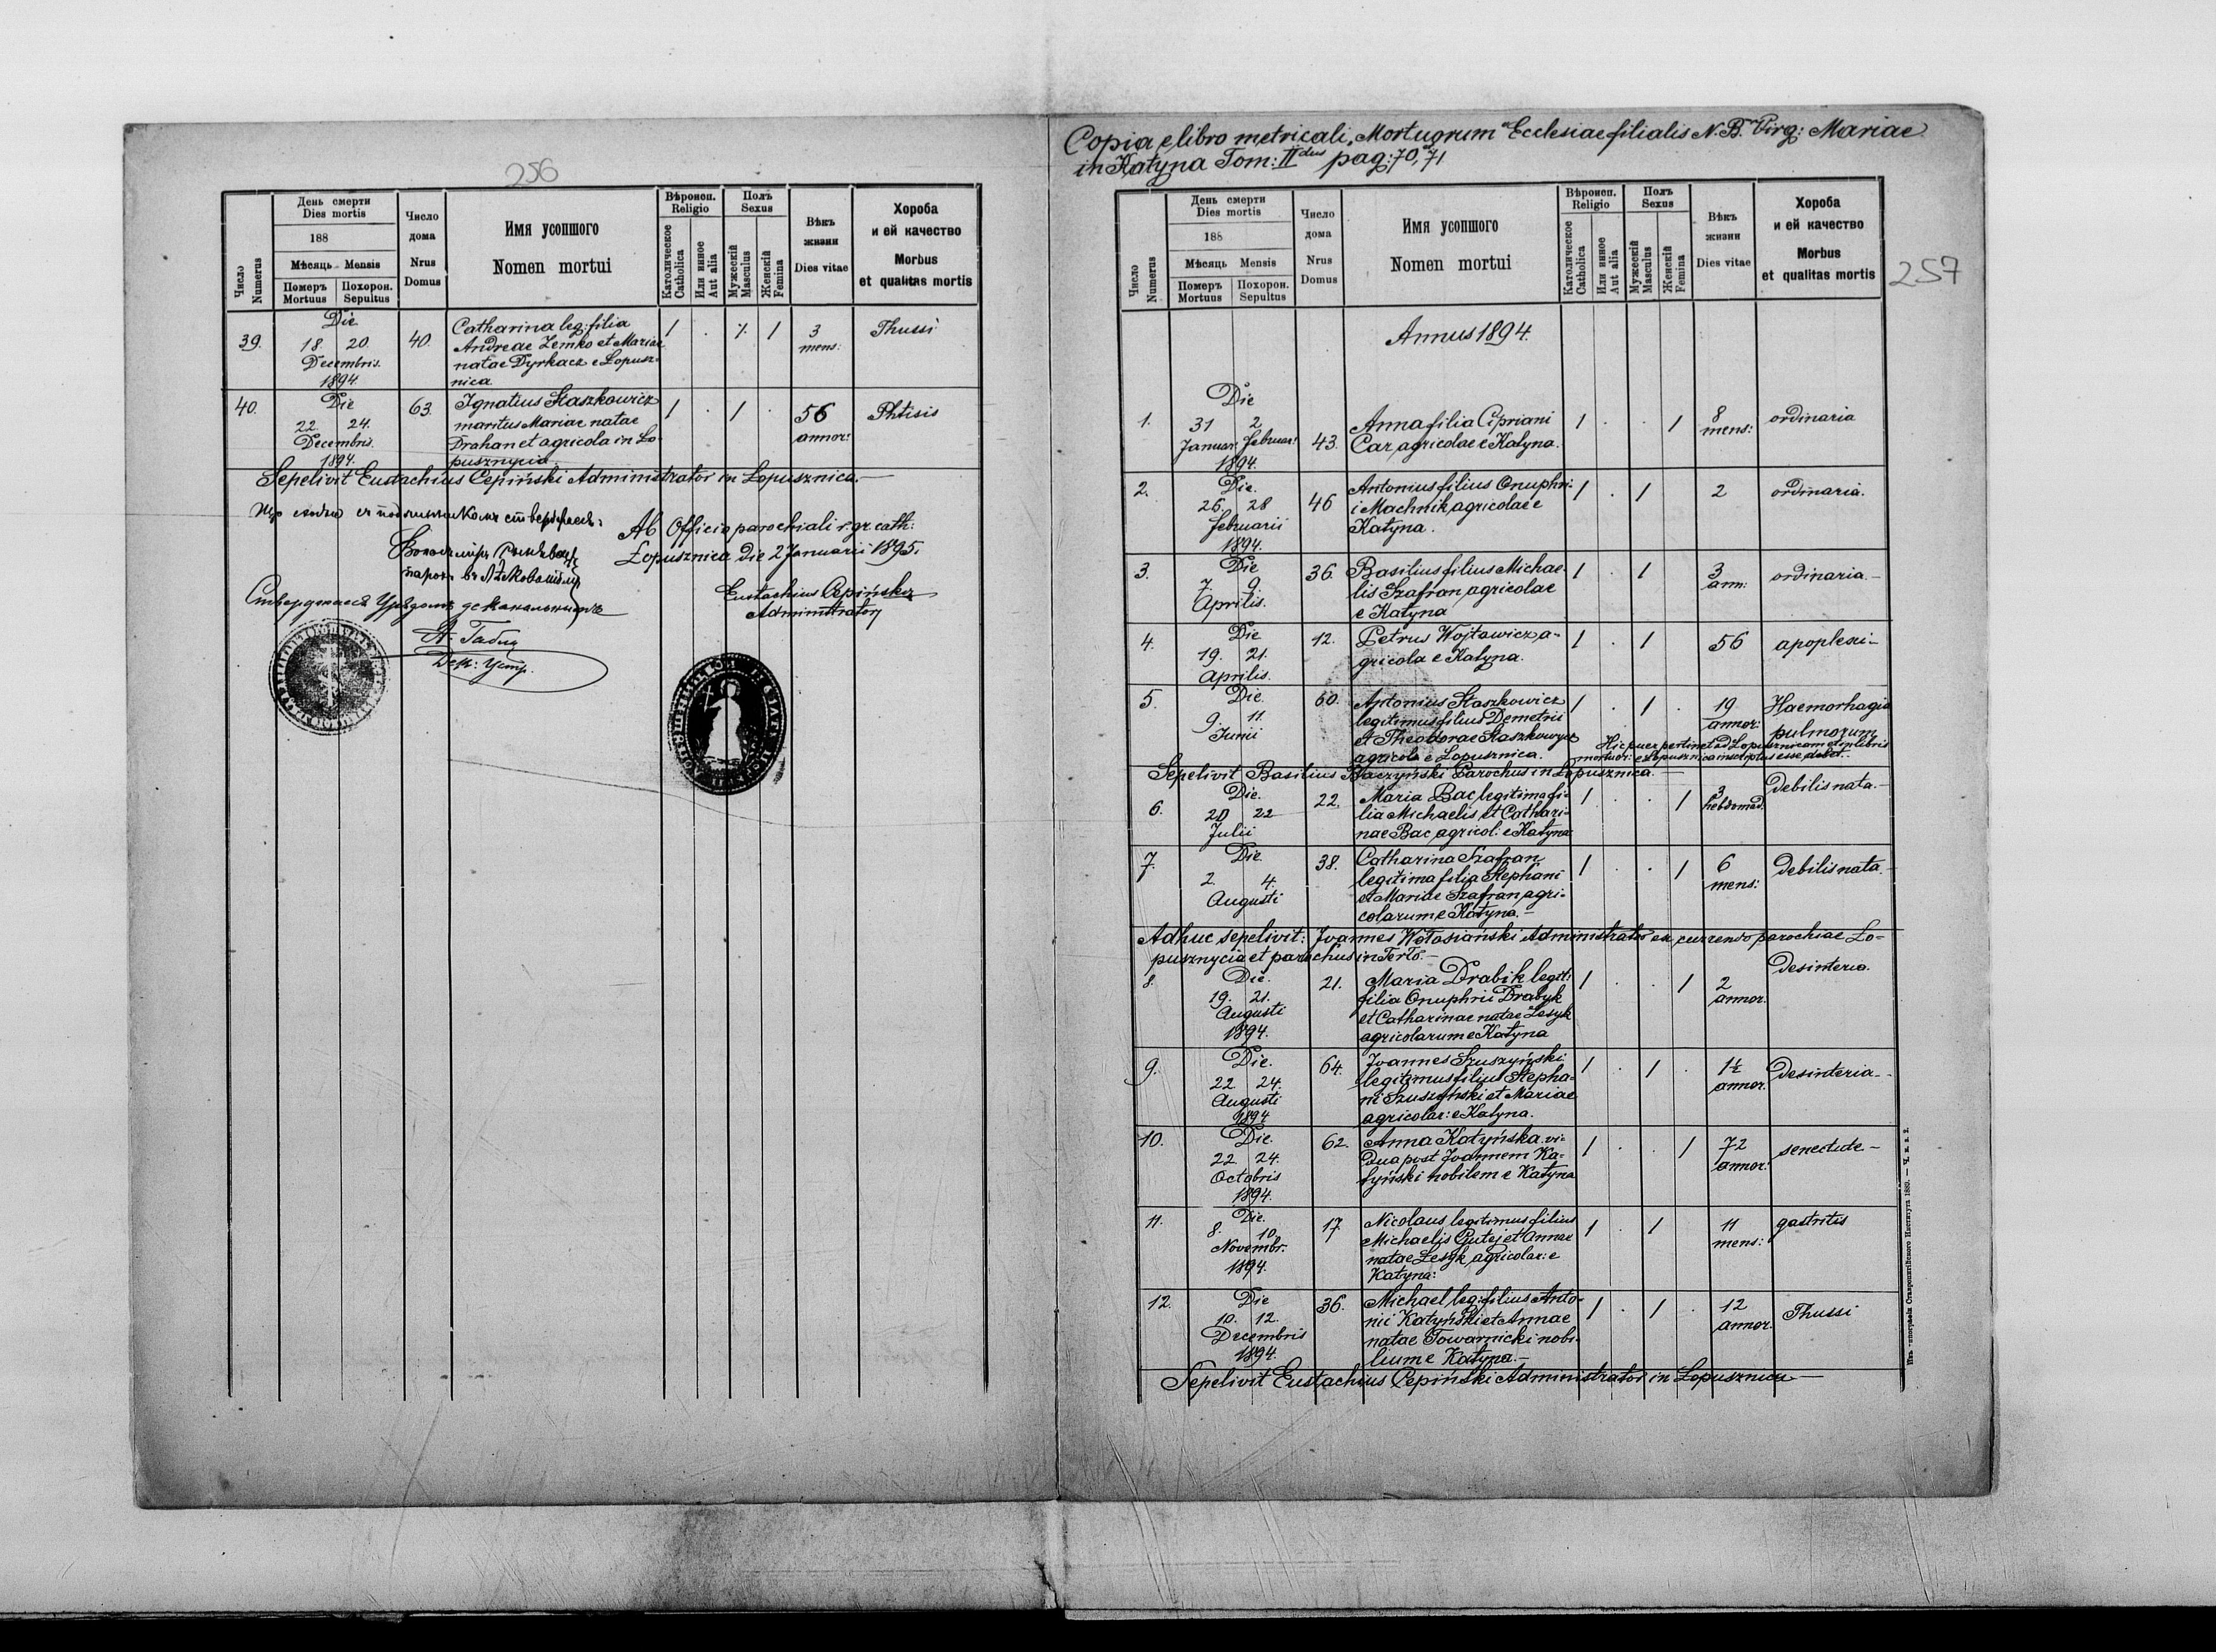 256
День смерти
Dies mortis
188
Мѣсяць Mensis
Померъ
Mortuus
Похорон.
Sepultus
Число
Numerus
Число
дома
Nrus
Domus
Имя усопшого
Nomen mortui
Вѣроисп.
Religio
Католическое
Catholica
Или инное
Aut alia
Полъ
Sexus
Мужескій
Masculus
Женскій
Femina
Вѣкъ
жизни
Dies vitae
Хороба
и ей качество
Morbus
et qualitas mortis
39. Die 40. Catharina leg: filia 1 . 1 3 Thussi
18 20 Andreae Zemko et Mariae mens:
Decembris. natae Dyrkacz e Lopusz-
1894 nica
40. Die 63. Ignatius Staszkowicz 1 . 1 . 56 Phtisis
22 24. maritus Mariae natae annor:
Decembris. Drahan et agricola in Lo-
1894. pusznycia.
Sepelivit Eustachius Cepiński Administrator in Lopusznica.—
Ab Officio parochiali r. gr. cath:
Łopusznica die 2 Januarii 1895.
Eustachius Cepiński
Administrator
Copia e libro metricali „Mortuorum" Ecclesiae filialis N. B. Virg: Mariae
in Katyna Tom: II dus pag: 70, 71
257
День смерти
Dies mortis
188
Мѣсяць Mensis
Померъ
Mortuus
Похорон.
Sepultus
Число
Numerus
Число
дома
Nrus
Domus
Имя усопшого
Nomen mortui
Вѣроисп.
Religio
Католическое
Catholica
Или инное
Aut alia
Полъ
Sexus
Мужескій
Masculus
Женскій
Femina
Вѣкъ
жизни
Dies vitae
Хороба
и ей качество
Morbus
et qualitas mortis
Annus 1894.
Die
1. 31 2 Anna filia Cipriani 1 . . 1 8 ordinaria
Januar: Februar: 43. Car, agricolae e Katyna. mens:
1894.
2. Die. 46 Antonius filius Onuphri- 1 . 1 2 ordinaria.
26. 28 i Machnik, agricolae e
Februarii Katyna.
1894.
3. Die 36. Basilius filius Michae- 1 . 1 3 ordinaria.—
7 9. lis Szafran, agricolae ann:
Aprilis. e Katyna
4. Die 12. Petrus Wojtowicz, a- 1 . 1 56 apoplexi—
19. 21. gricola e Katyna.
Aprilis.
5. Die. 60. Antonius Staszkowicz 1 . 1 . 19 Haemorhagia
9. 11. legitimus filius Demetrii annor: pulmorum
Junii et Theodorae Staszkowycz
agricola e Lopusznica.
Hic puer pertinet ad Lopusznicam et in libris
mortuor: e Lopusznica inscriptus esse debet.
Sepelivit Basilius Baczyński Parochus in Lopusznica.—
6. Die. 22. Maria Bac legitima fi- 1 . . 1 3 debilis nata.—
20 22 lia Michaelis et Cathari- hebdomad.
Julii nae Bac, agricol: e Katyna
7. Die 38. Catharina Szafran 1 . . 1 6 debilis nata.—
2. 4. legitima filia Stephani mens:
Augusti et Mariae Szafran, agri-
colarum e Katyna.—
Adhuc sepelivit: Joannes Wołosianski Administrator ex currendo parochiae Lo-
pusznycia et parochus in Terło.—
8. Die. 21. Maria Drabik legit: 1 . . 1 2 desinteria.
19. 21. filia Onuphrii Drabyk annor.
Augusti et Catharinae natae Łesyk
1894. agricolarum e Katyna
9. Die. 64. Joannes Szuszyński 1 . 1 . 1½ Desinteria.—
22 24. legitimus filius Stepha- annor.
Augusti ni Szuszyński et Mariae
1894 agricolar: e Katyna.
10. Die. 62. Anna Katyńska vi- 1 . . 1 72 senectute.—
22 24. dua post Joannem Ka- annor:
Octobris tyński nobilem e Katyna
1894.
11. Die. 17. Nicolaus legitimus filius 1 . 1 11 gastritis
8. 10. Michaelis Gutej et Annae mens:
Novembr. natae Łesyk, agricolar: e
1894. Katyna:
12. Die 36. Michael leg: filius Anto- 1 . 1 . 12 Thussi
10. 12. nii Katyński et Annae annor.
Decembris natae Towarnicki nobi-
1894. lium e Katyna.—
Sepelivit Eustachius Cepiński Administrator in Lopusznica—
Изъ типографіи Ставропигійского Института 1889. — Ч. в. з. 2.